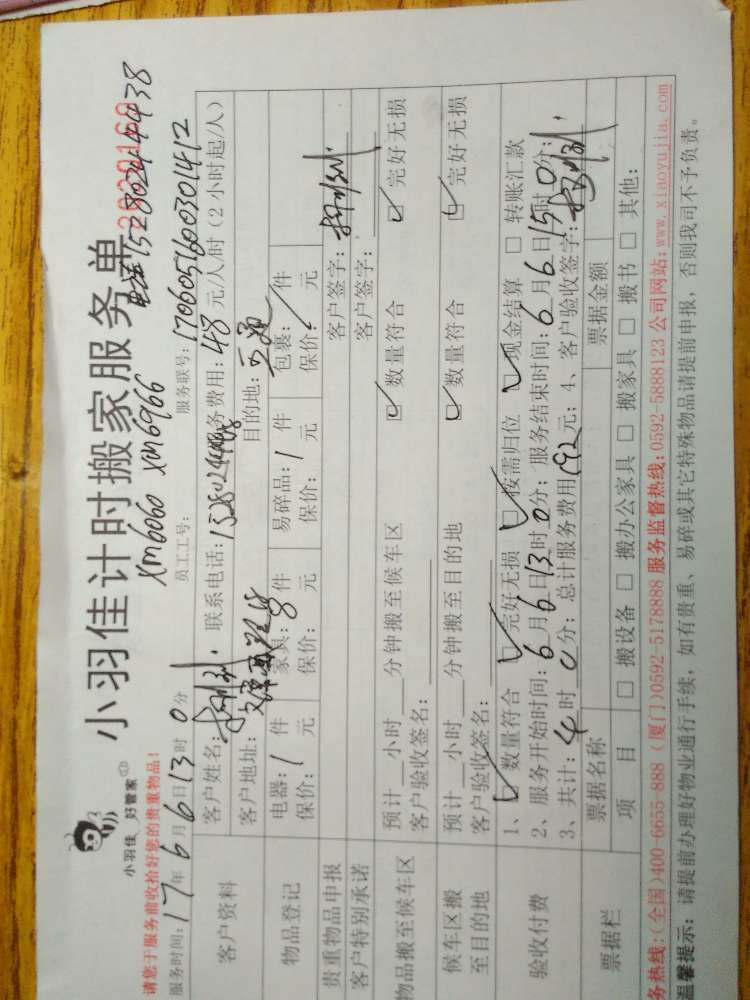 小羽佳计时搬家服务单
小羽佳 好管家
请您于服务前收拾好您的贵重物品!
xm6060 xm6966
电话15280244438
服务时间:17年6月6日13时0分 员工工号: 服务联号:1706051600301412
客户资料
客户姓名: 联系电话: 服务费用:48元/人/时(2小时起/人)
客户地址: 目的地:
物品登记
电器:1件 家具:8件 易碎品:1件 包裹:/件
保价:/元 保价: 元 保价: 元 保价: 元
贵重物品申报 客户签字:
客户特别承诺 客户签字:
物品搬至候车区
预计__小时__分钟搬至候车区 ☑数量符合 ☑完好无损
客户验收签名:
候车区搬至目的地
预计__小时__分钟搬至目的地 ☑数量符合 ☑完好无损
客户验收签名:
验收付费
1、☑数量符合 ☑完好无损 ☑按需归位 ☑现金结算 □转账汇款
2、服务开始时间:6月6日13时0分;服务结束时间:6月6日15时0分;
3、共计:4时0分;总计服务费用192元;4、客户验收签字:
票据栏
票据名称 票据金额
项 目 □搬设备 □搬办公家具 □搬家具 □搬书 □其他:
务热线:(全国)400-6655-888 (厦门)0592-5178888 服务监督热线:0592-5888123 公司网站:www.xiaoyujia.com
温馨提示:请提前办理好物业通行手续,如有贵重、易碎或其它特殊物品请提前申报,否则我司不予负责。